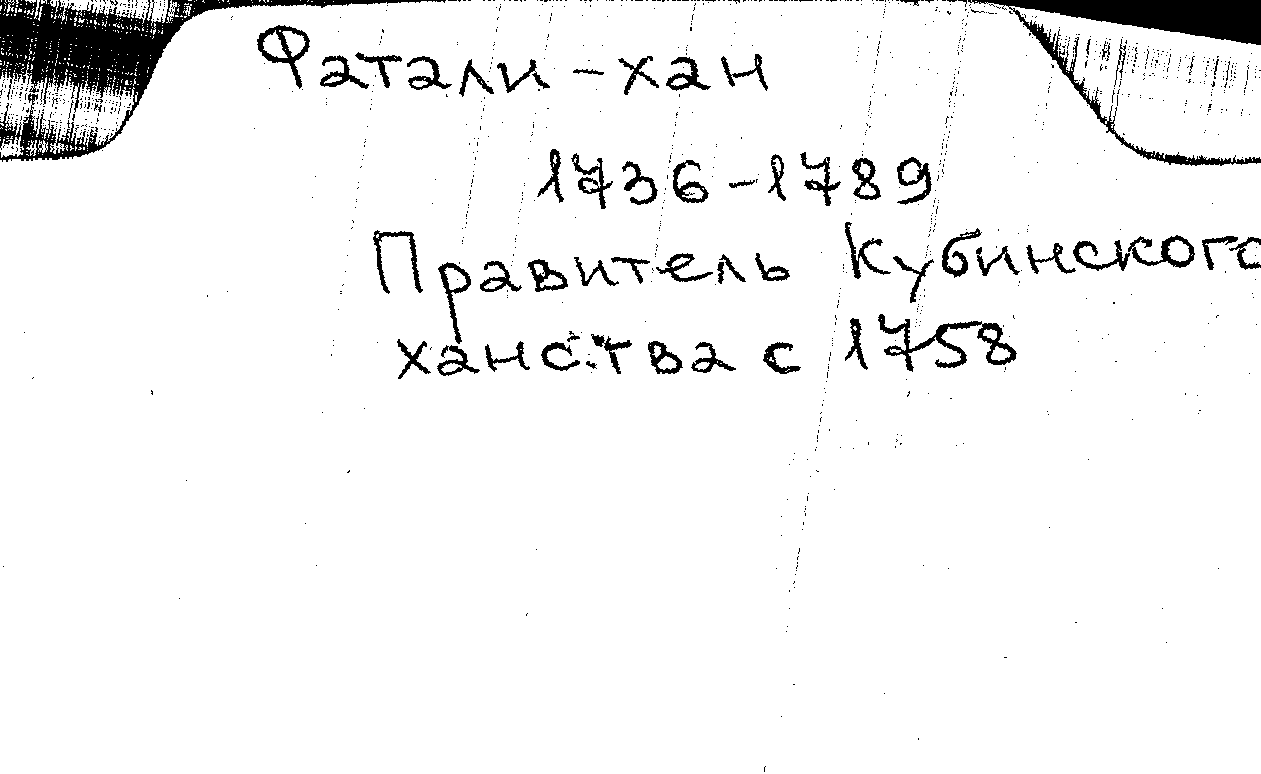 Фатали-хан
1736-1789
Правитель Кубинского
ханства с 1758